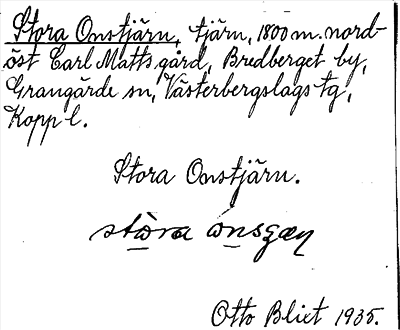 Stora Onstjärn, tjärn, 1800 m. nord-
öst Carl Mattsgård, Bredberget by,
Grangärde sn, Västerbergslags tg,
Kopp l.
Stora Onstjärn.
Otto Blixt 1935.